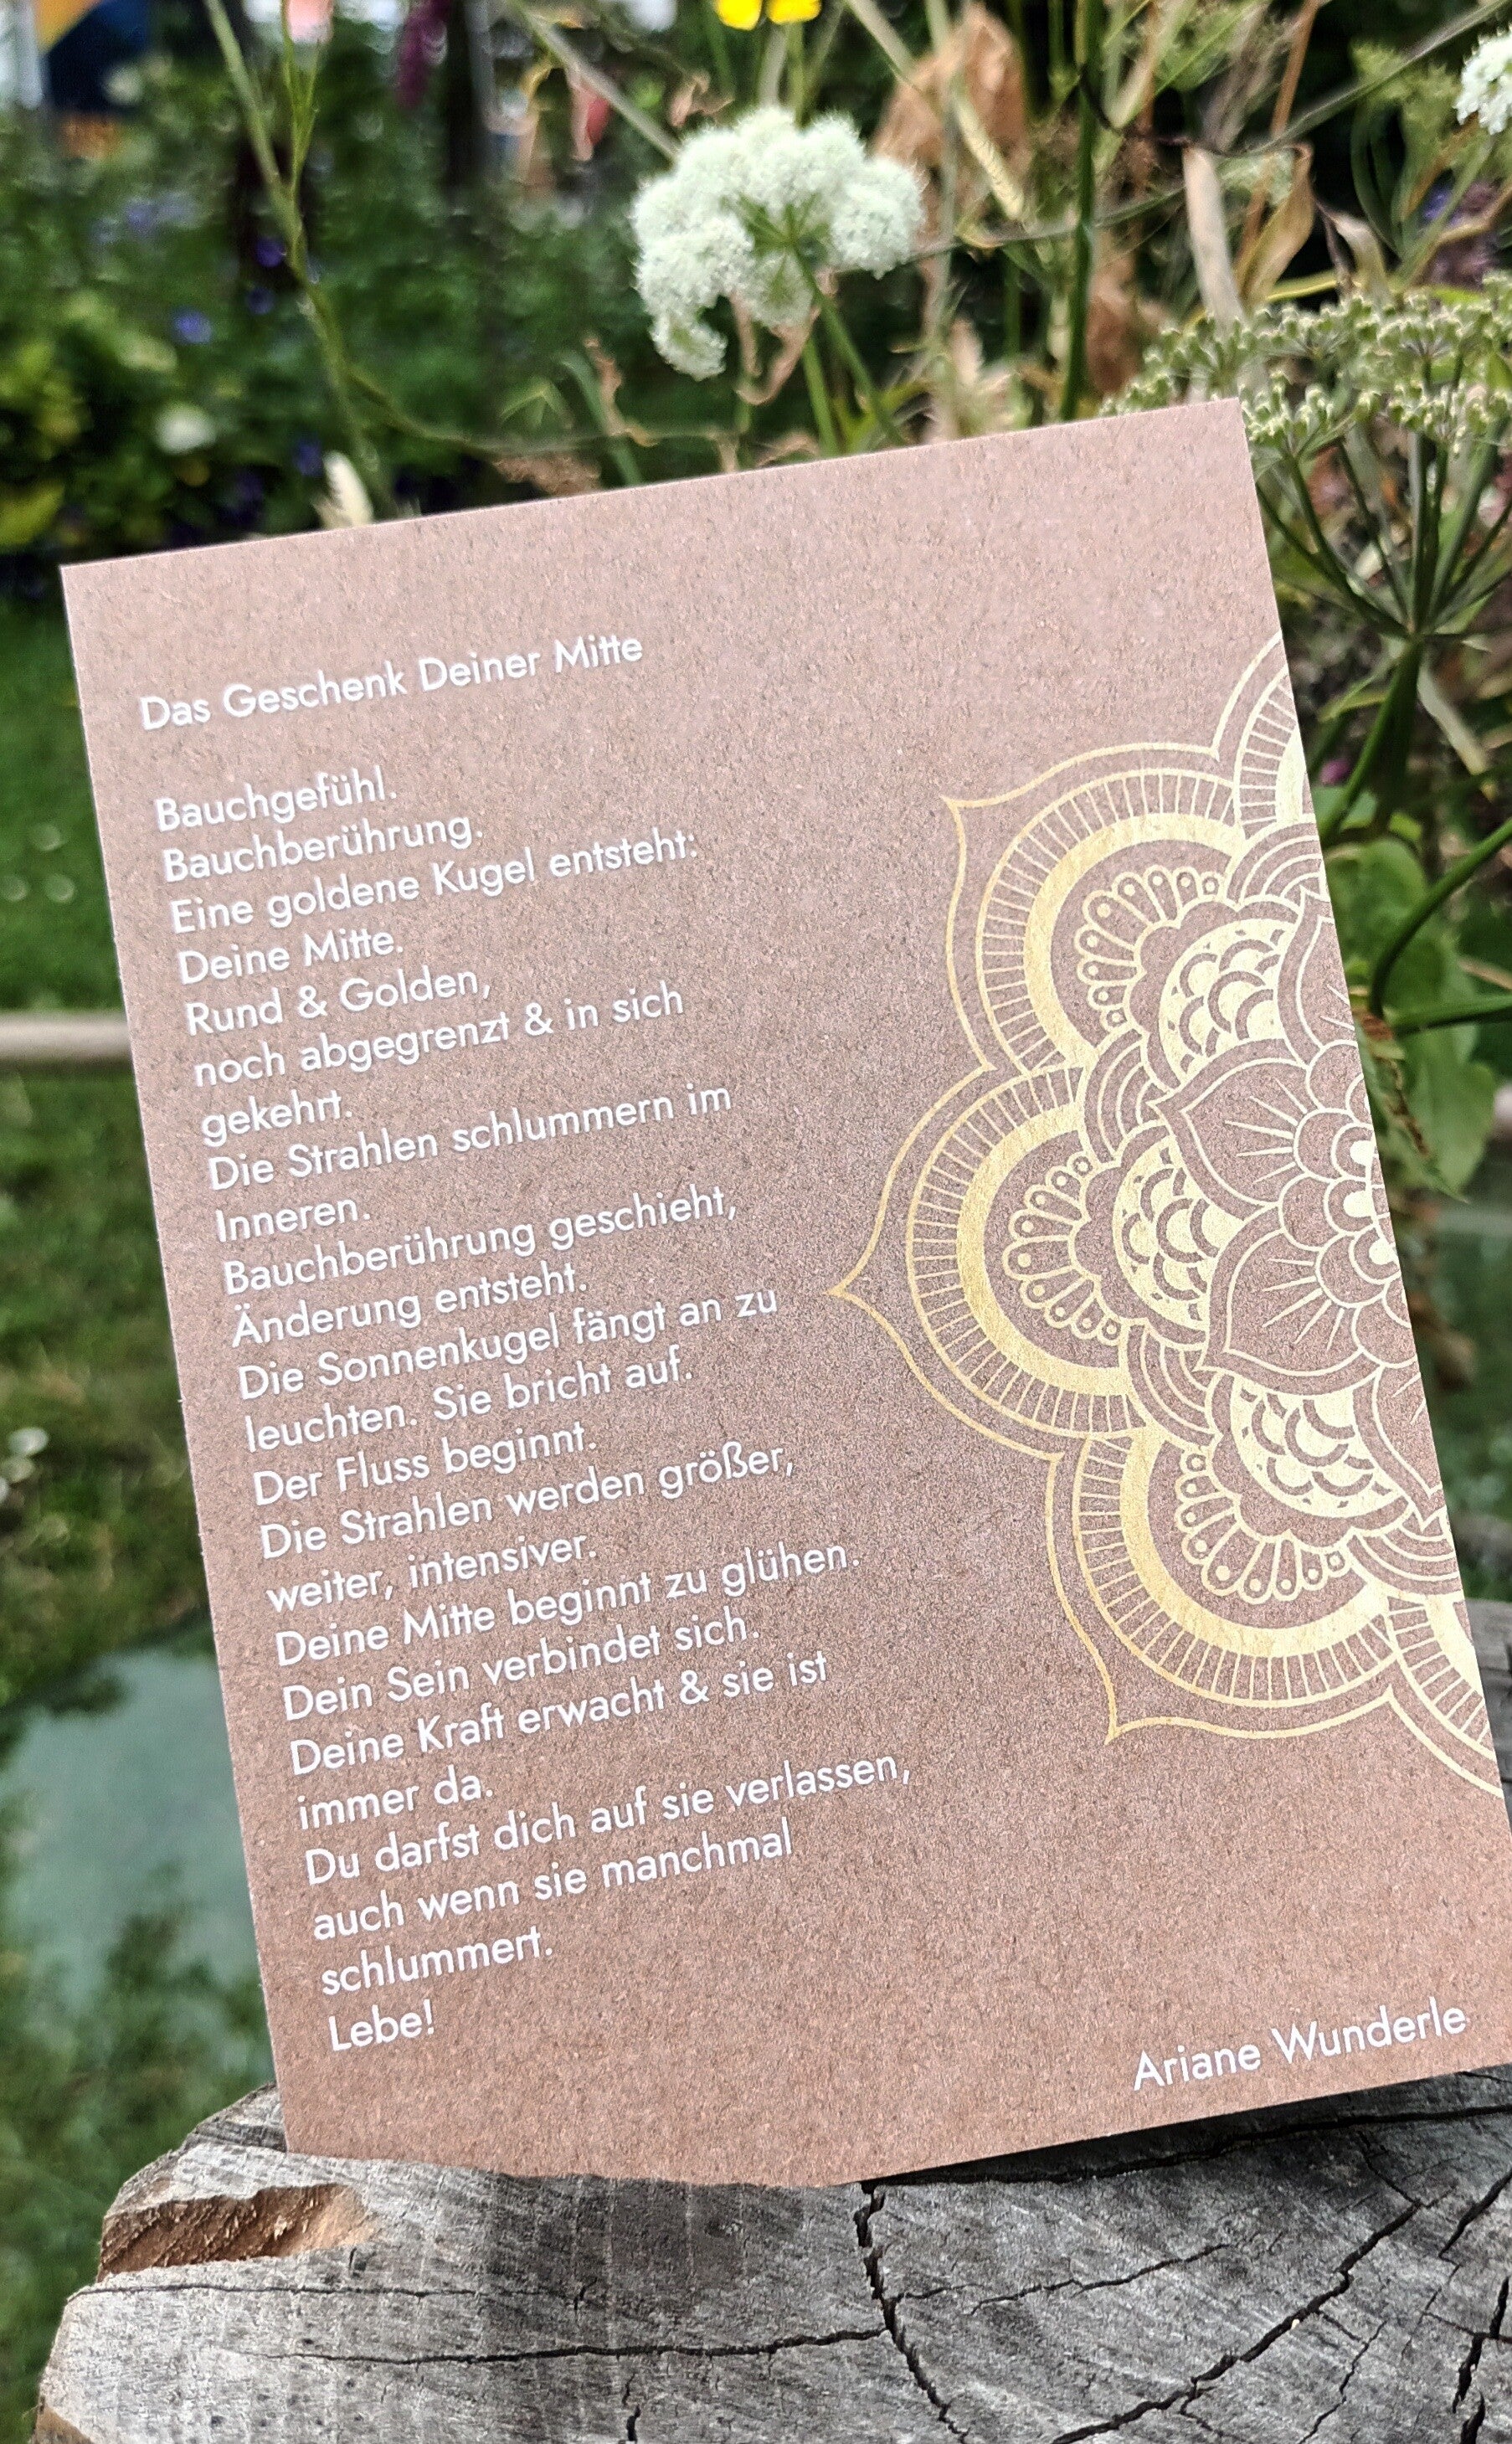 Das Geschenk Deiner Mitte
Bauchgefühl.
Bauchberührung.
Eine goldene Kugel entsteht:
Deine Mitte.
Rund & Golden,
noch abgegrenzt & in sich
gekehrt.
Die Strahlen schlummern im
Inneren.
Bauchberührung geschieht,
Änderung entsteht.
Die Sonnenkugel fängt an zu
leuchten. Sie bricht auf.
Der Fluss beginnt.
Die Strahlen werden größer,
weiter, intensiver.
Deine Mitte beginnt zu glühen.
Dein Sein verbindet sich.
Deine Kraft erwacht & sie ist
immer da.
Du darfst dich auf sie verlassen,
auch wenn sie manchmal
schlummert.
Lebe!
Ariane Wunderle